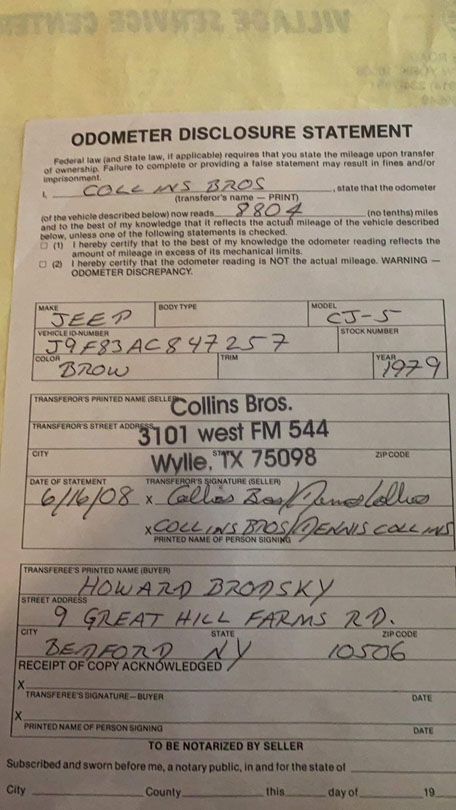 VILLAGE SERVICE CENTER
ODOMETER DISCLOSURE STATEMENT
Federal law (and State law, if applicable) requires that you state the mileage upon transfer
of ownership. Failure to complete or providing a false statement may result in fines and/or
imprisonment.
I, COLLINS BROS, state that the odometer
(transferor's name — PRINT)
(of the vehicle described below) now reads 8804 (no tenths) miles
and to the best of my knowledge that it reflects the actual mileage of the vehicle described
below, unless one of the following statements is checked.
☐ (1) I hereby certify that to the best of my knowledge the odometer reading reflects the
amount of mileage in excess of its mechanical limits.
☐ (2) I hereby certify that the odometer reading is NOT the actual mileage. WARNING —
ODOMETER DISCREPANCY.
MAKE BODY TYPE MODEL
JEEP CJ-5
VEHICLE ID NUMBER STOCK NUMBER
J9F83AC847257
COLOR TRIM YEAR
BROW 1979
TRANSFEROR'S PRINTED NAME (SELLER)
Collins Bros.
TRANSFEROR'S STREET ADDRESS
3101 west FM 544
CITY ZIP CODE
Wylie, TX 75098
DATE OF STATEMENT TRANSFEROR'S SIGNATURE (SELLER)
6/16/08 X Collins Bros/Dennis Collins
X COLLINS BROS/DENNIS COLLINS
PRINTED NAME OF PERSON SIGNING
TRANSFEREE'S PRINTED NAME (BUYER)
HOWARD BRODSKY
STREET ADDRESS
9 GREAT HILL FARMS RD.
CITY STATE ZIP CODE
BEDFORD NY 10506
RECEIPT OF COPY ACKNOWLEDGED
X
TRANSFEREE'S SIGNATURE — BUYER DATE
X
PRINTED NAME OF PERSON SIGNING DATE
TO BE NOTARIZED BY SELLER
Subscribed and sworn before me, a notary public, in and for the state of
City County this day of 19